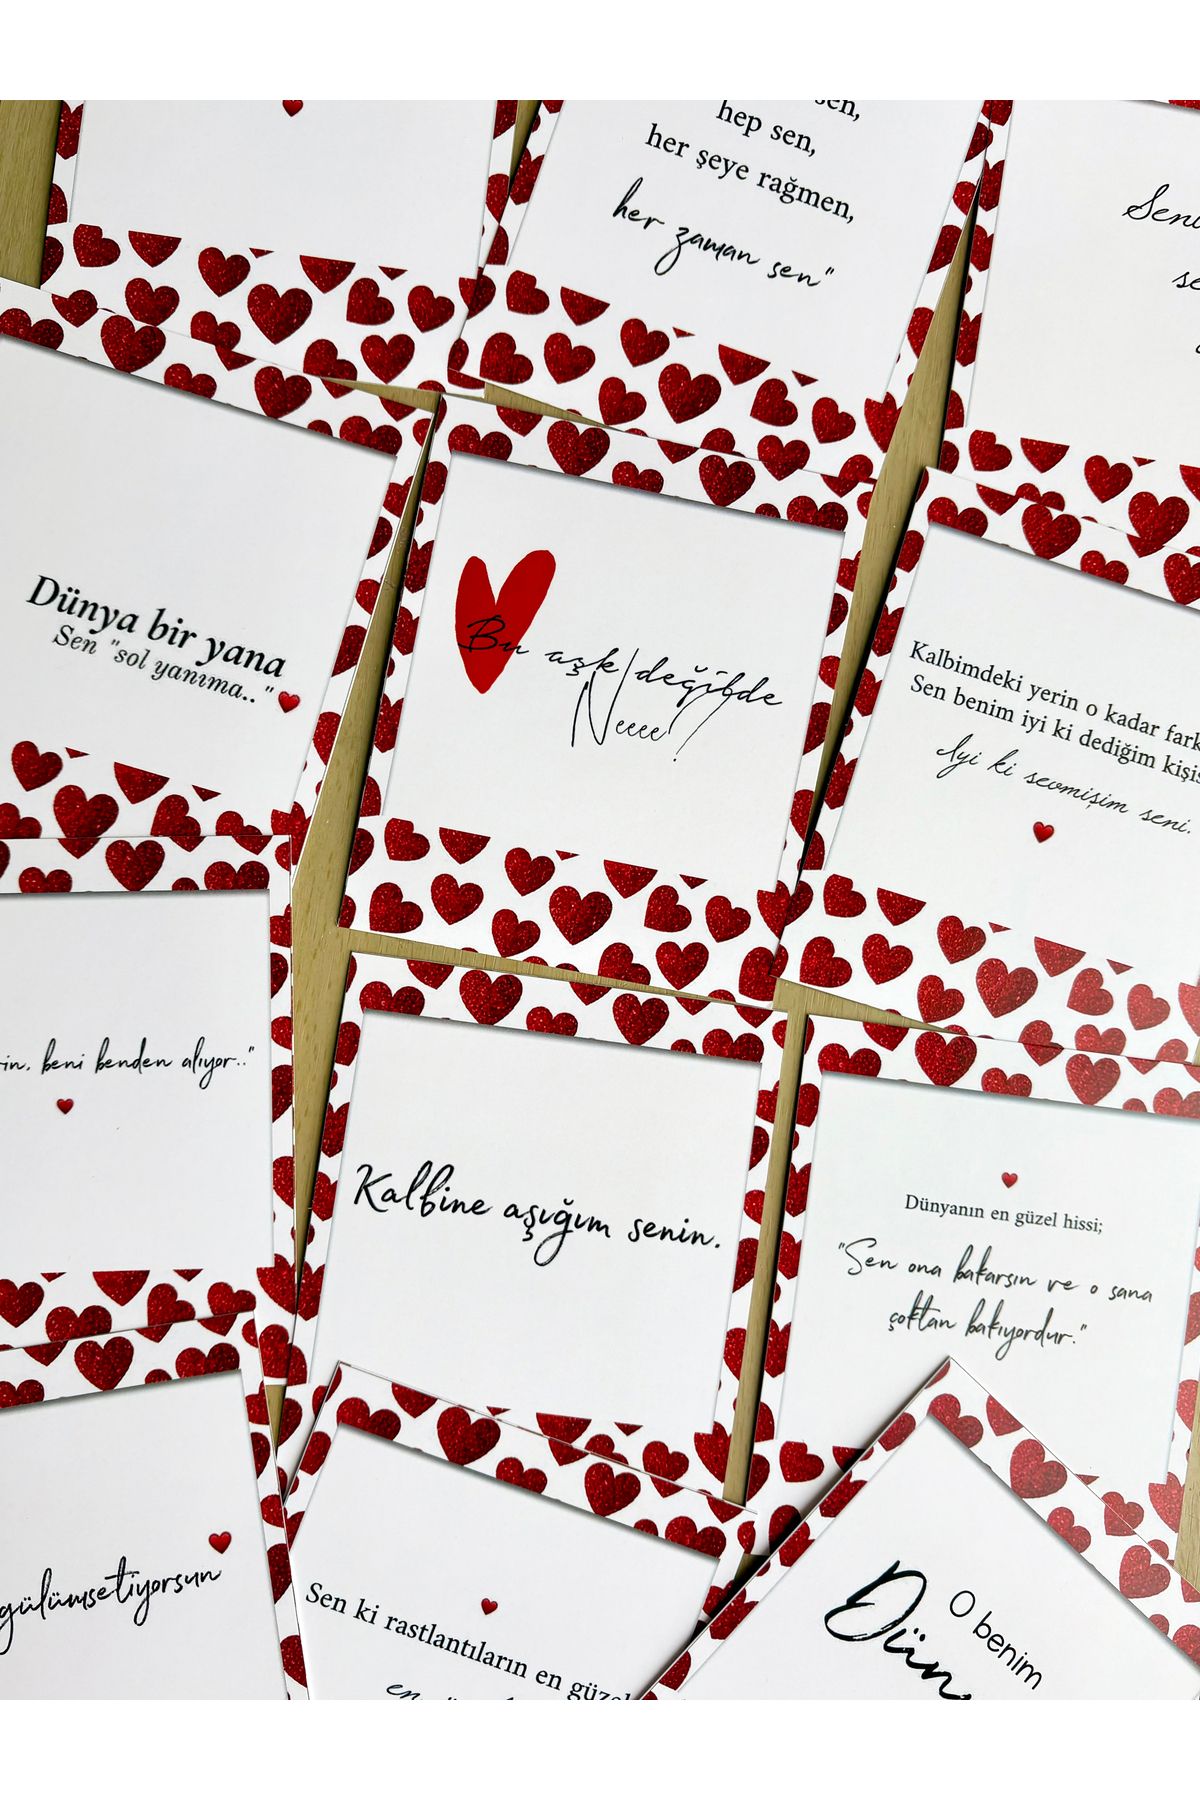 hep sen,
her şeye rağmen,
her zaman sen"
Dünya bir yana
Sen "sol yanıma.."
Bu aşk değilde
Neeee?
Kalbimdeki yerin o kadar
Sen benim iyi ki dediğim
İyi ki sevmişim seni.
beni benden alıyor.."
Kalbine aşığım senin.
Dünyanın en güzel hissi;
"Sen ona bakarsın ve o sana
çoktan bakıyordur."
gülümsetiyorsun
Sen ki rastlantıların en
O benim